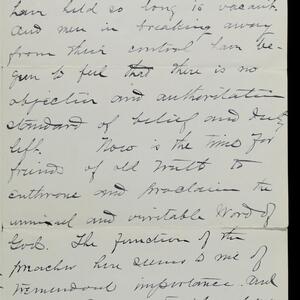 have held so long is vacant
and men in breaking away
from their control have be-
gun to feel that there is no
objective and authoritative
standard of belief and duty
left. Now is the time for
friends of old truth to
enthrone and proclaim the
and veritable Word of
God. The function of the
preacher here seems to me of
tremendous importance, and